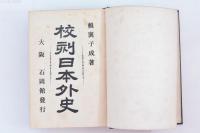 賴襄子成著
校刻日本外史
大阪 發行